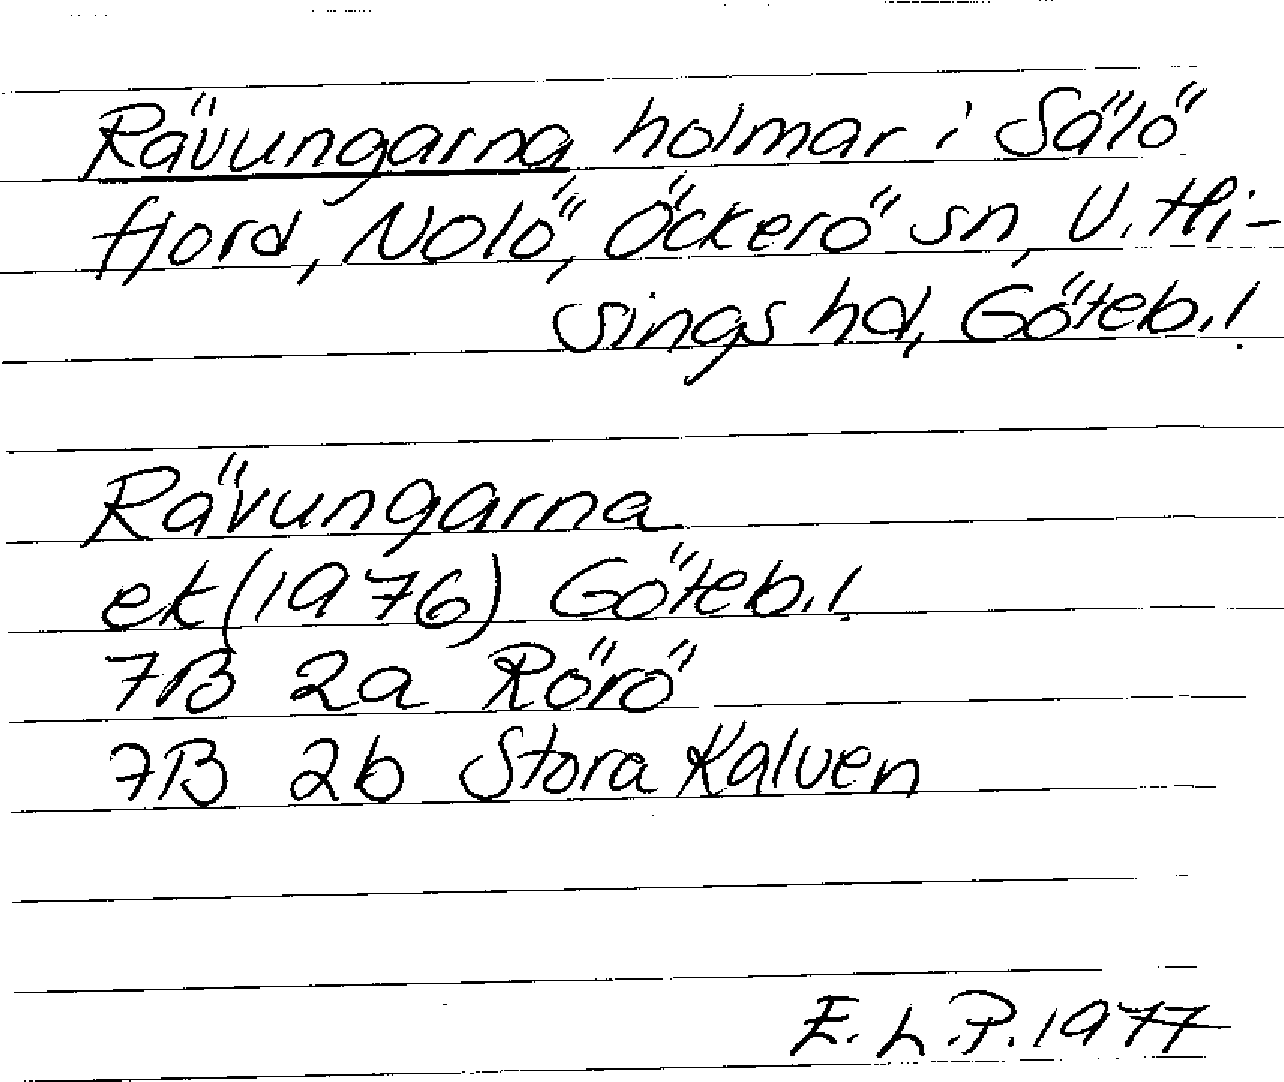 Rävungarna holmar i Sälö
fjord, Nolö, Öckerö sn, V. Hi-
sings hd, Göteb. l.
Rävungarna
ek (1976) Göteb. l.
7B 2a Rörö
7B 2b Stora Kalven
E. L. P. 1977